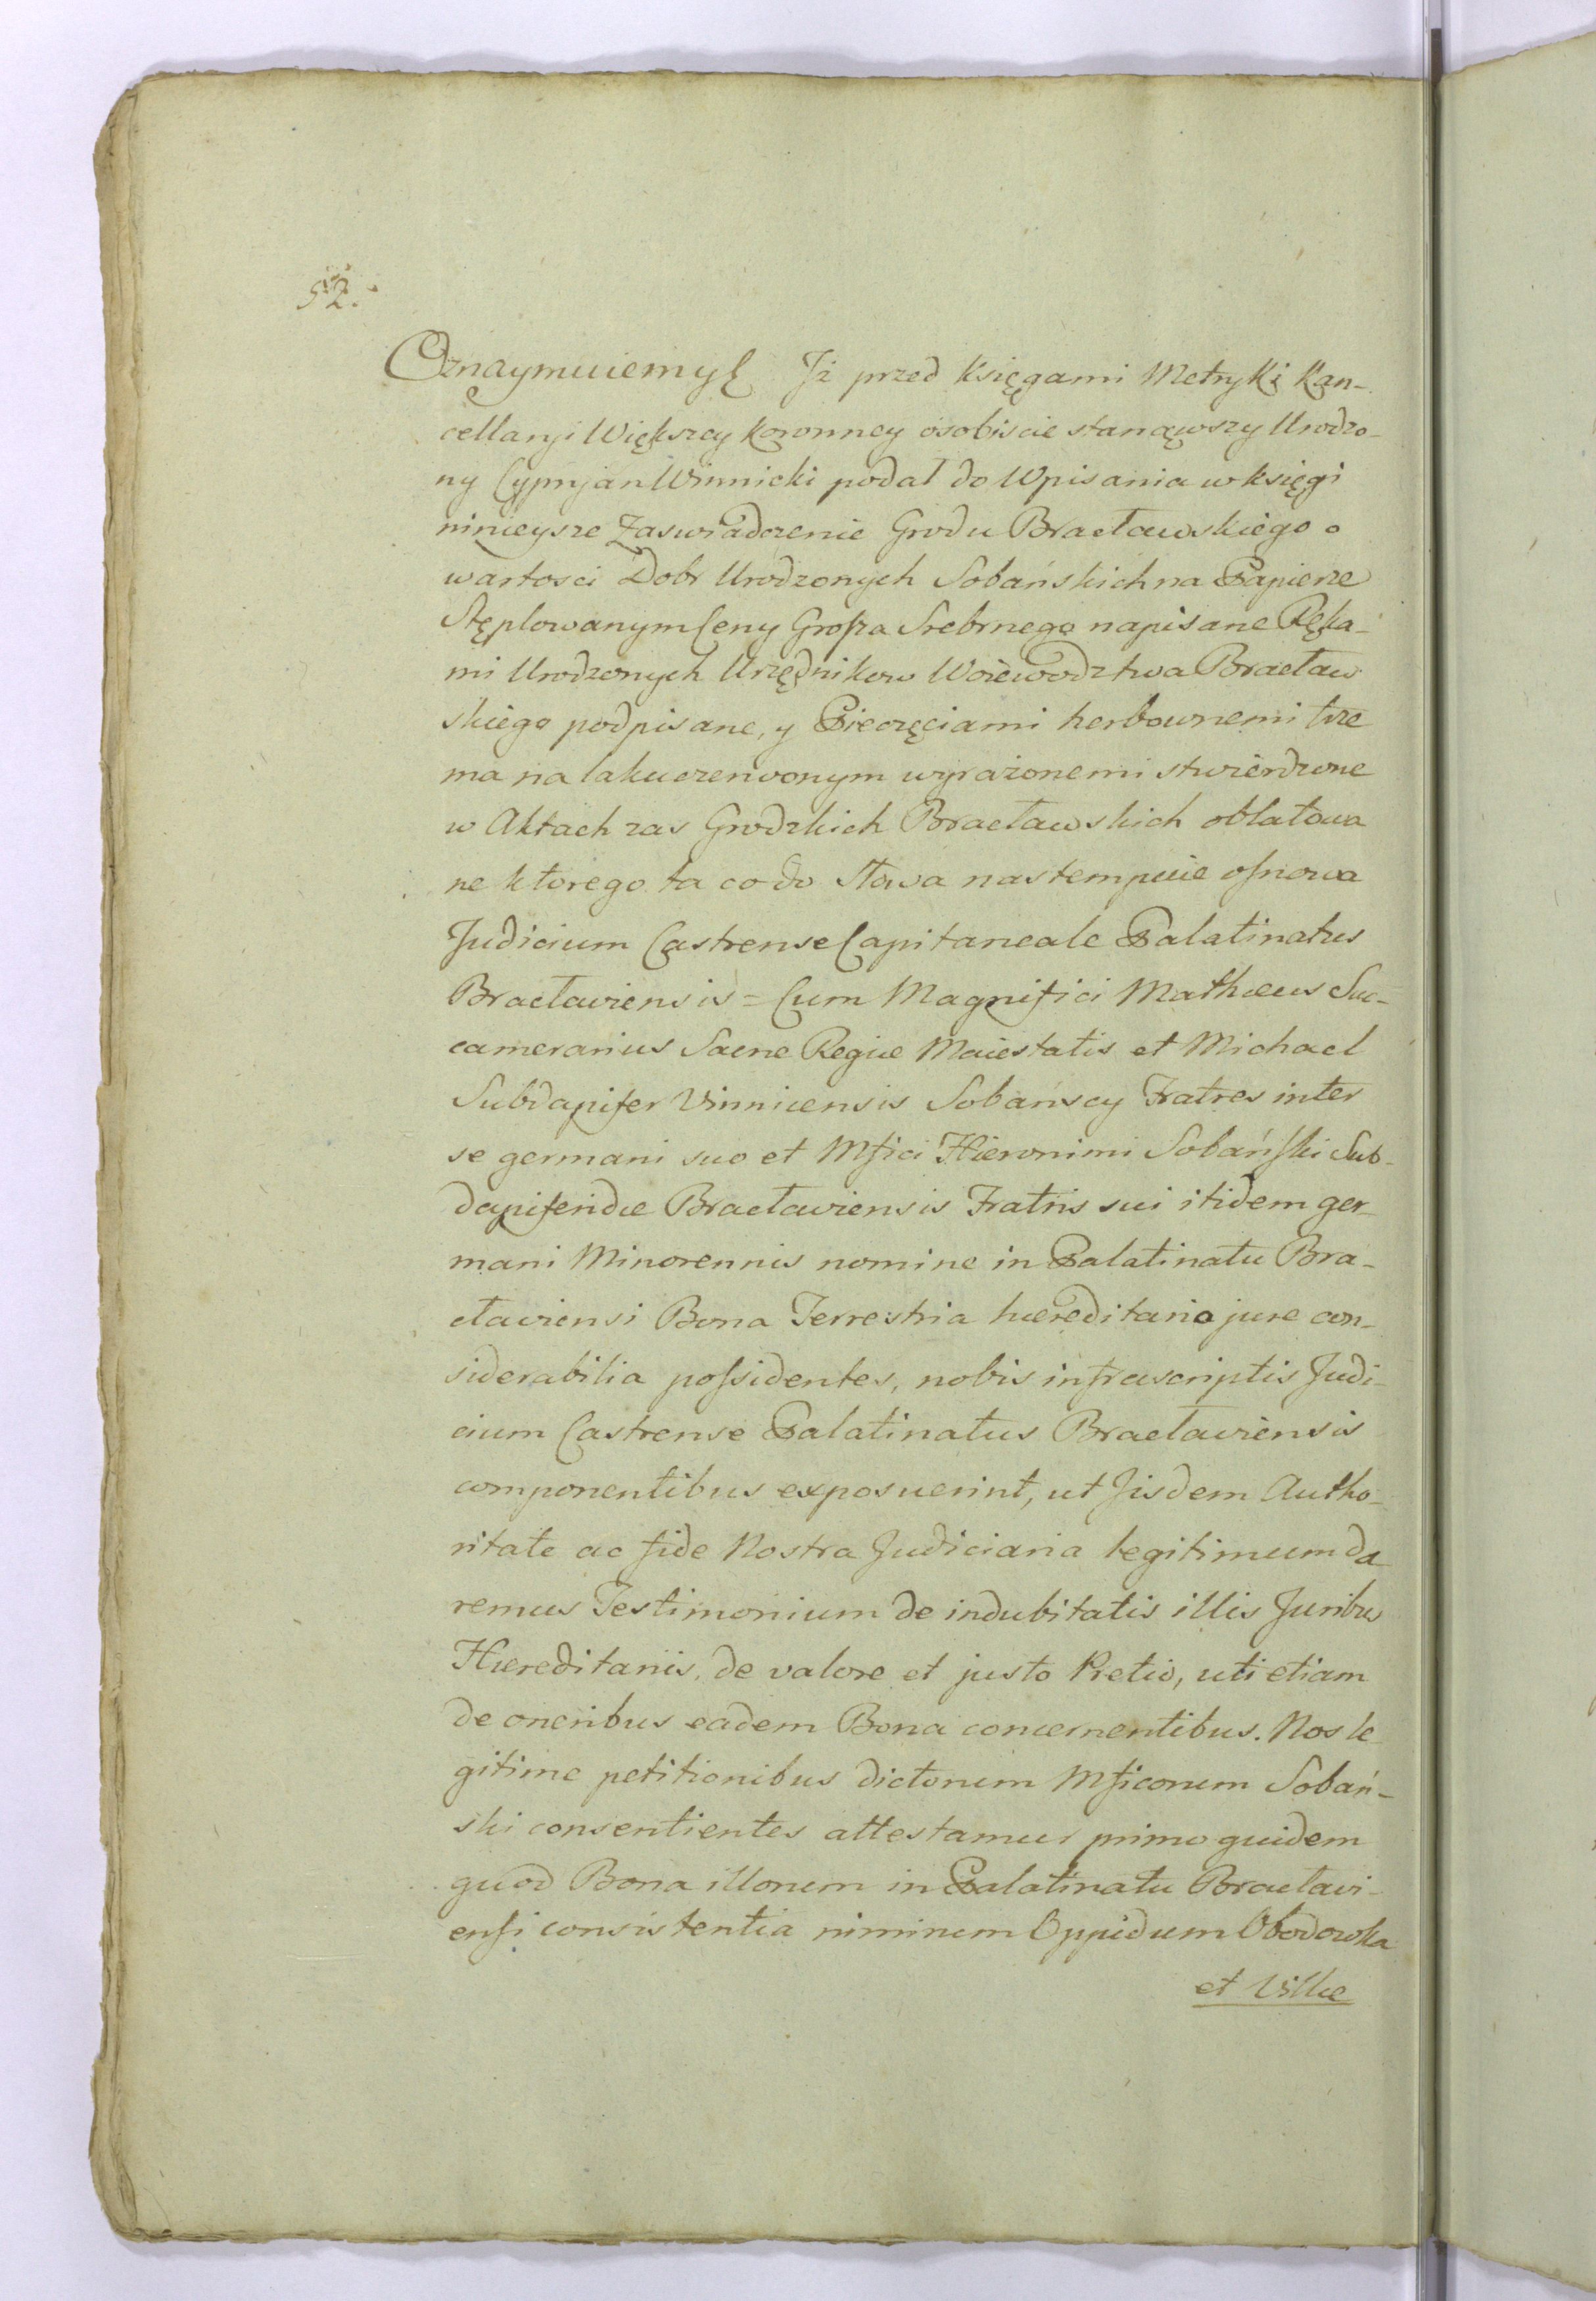 52.
Oznaymuiemy Iż przed Księgami Metryki Kan-
cellaryi Większey Koronney osobiscie stanąwszy Urodzo-
ny Cypryan Winnicki podał do Wpisania w księgi
ninieysze Zaswiadczenie Grodu Bracławskiego o
wartosci Dobr Urodzonych Sobańskich na Papierze
Stęplowanym Ceny Grosza Srebrnego napisane Ręka-
mi Urodzonych Urzędnikow Woiewodztwa Bracław
skiego podpisane, y Pieczęciami herbownemi trze
ma na laku czerwonym wyrażonemi stwierdzone
w Aktach zas Grodzkich Bracławskich oblatowa
ne ktorego ta co do słowa nastempuie osnowa
Judicium Castrense Capitaneale Palatinatus
Bracłaviensis = Cum Magnifici Mathæus Suc-
camerarius Sacræ Regiæ Maiestatis et Michael
Subdapifer Vinnicensis Sobańscy Fratres inter
se germani suo et Mfici Hieronimi Sobański Sub-
dapiferidæ Bracłaviensis Fratris sui itidem ger
mani Minorennis nomine in Palatinatu Bra-
cłaviensi Bona Terrestria hæreditario jure con-
siderabilia possidentes, nobis infrascriptis Judi-
cium Castrense Palatinatus Bracłaviensis
componentibus exposuerint, ut Iisdem Autho-
ritate ac fide Nostra Judiciaria legitimum da
remus Testimonium de indubitatis illis Juribus
Hæreditariis, de valore et justo Pretio, uti etiam
de oneribus eadem Bona concernentibus. Nos le
gitime petitionibus dictorum Mficorum Sobań-
ski consentientes attestamur primo quidem
quod Bona illorum in Palatinatu Bracłavi-
ensi consistentia nimirum Oppidum Obodowka
et Villæ